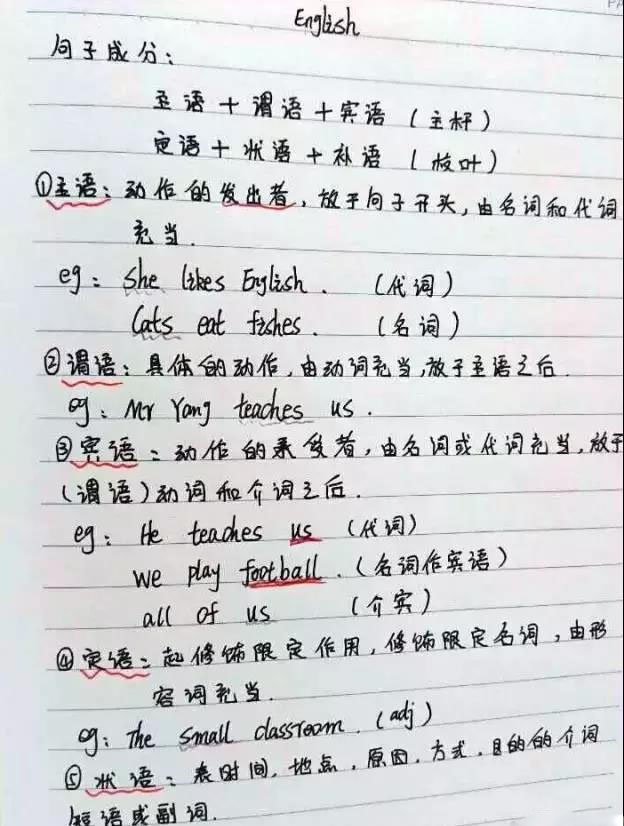 English
句子成分：
主语＋谓语＋宾语（主杆）
定语＋状语＋补语（枝叶）
①主语：动作的发出者，放于句子开头，由名词和代词
充当．
eg：She likes English．（代词）
Cats eat fishes．（名词）
②谓语：具体的动作，由动词充当，放于主语之后．
eg：Mr Yang teaches us．
③宾语：动作的承受者，由名词或代词充当，放于
（谓语）动词和介词之后．
eg：He teaches us（代词）
we play football．（名词作宾语）
all of us （介宾）
④定语：起修饰限定作用，修饰限定名词，由形
容词充当．
eg：The small classroom．（adj）
⑤状语：表时间，地点，原因，方式，目的的介词
短语或副词．